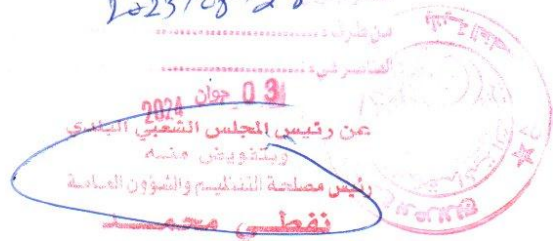 2023/08/28
من طرف :
الصادر في :
03 جوان 2024
عن رئيس المجلس الشعبي البلدي
وبتفويض منه
رئيس مصلحة التنظيم والشؤون العامة
نفطي محمد